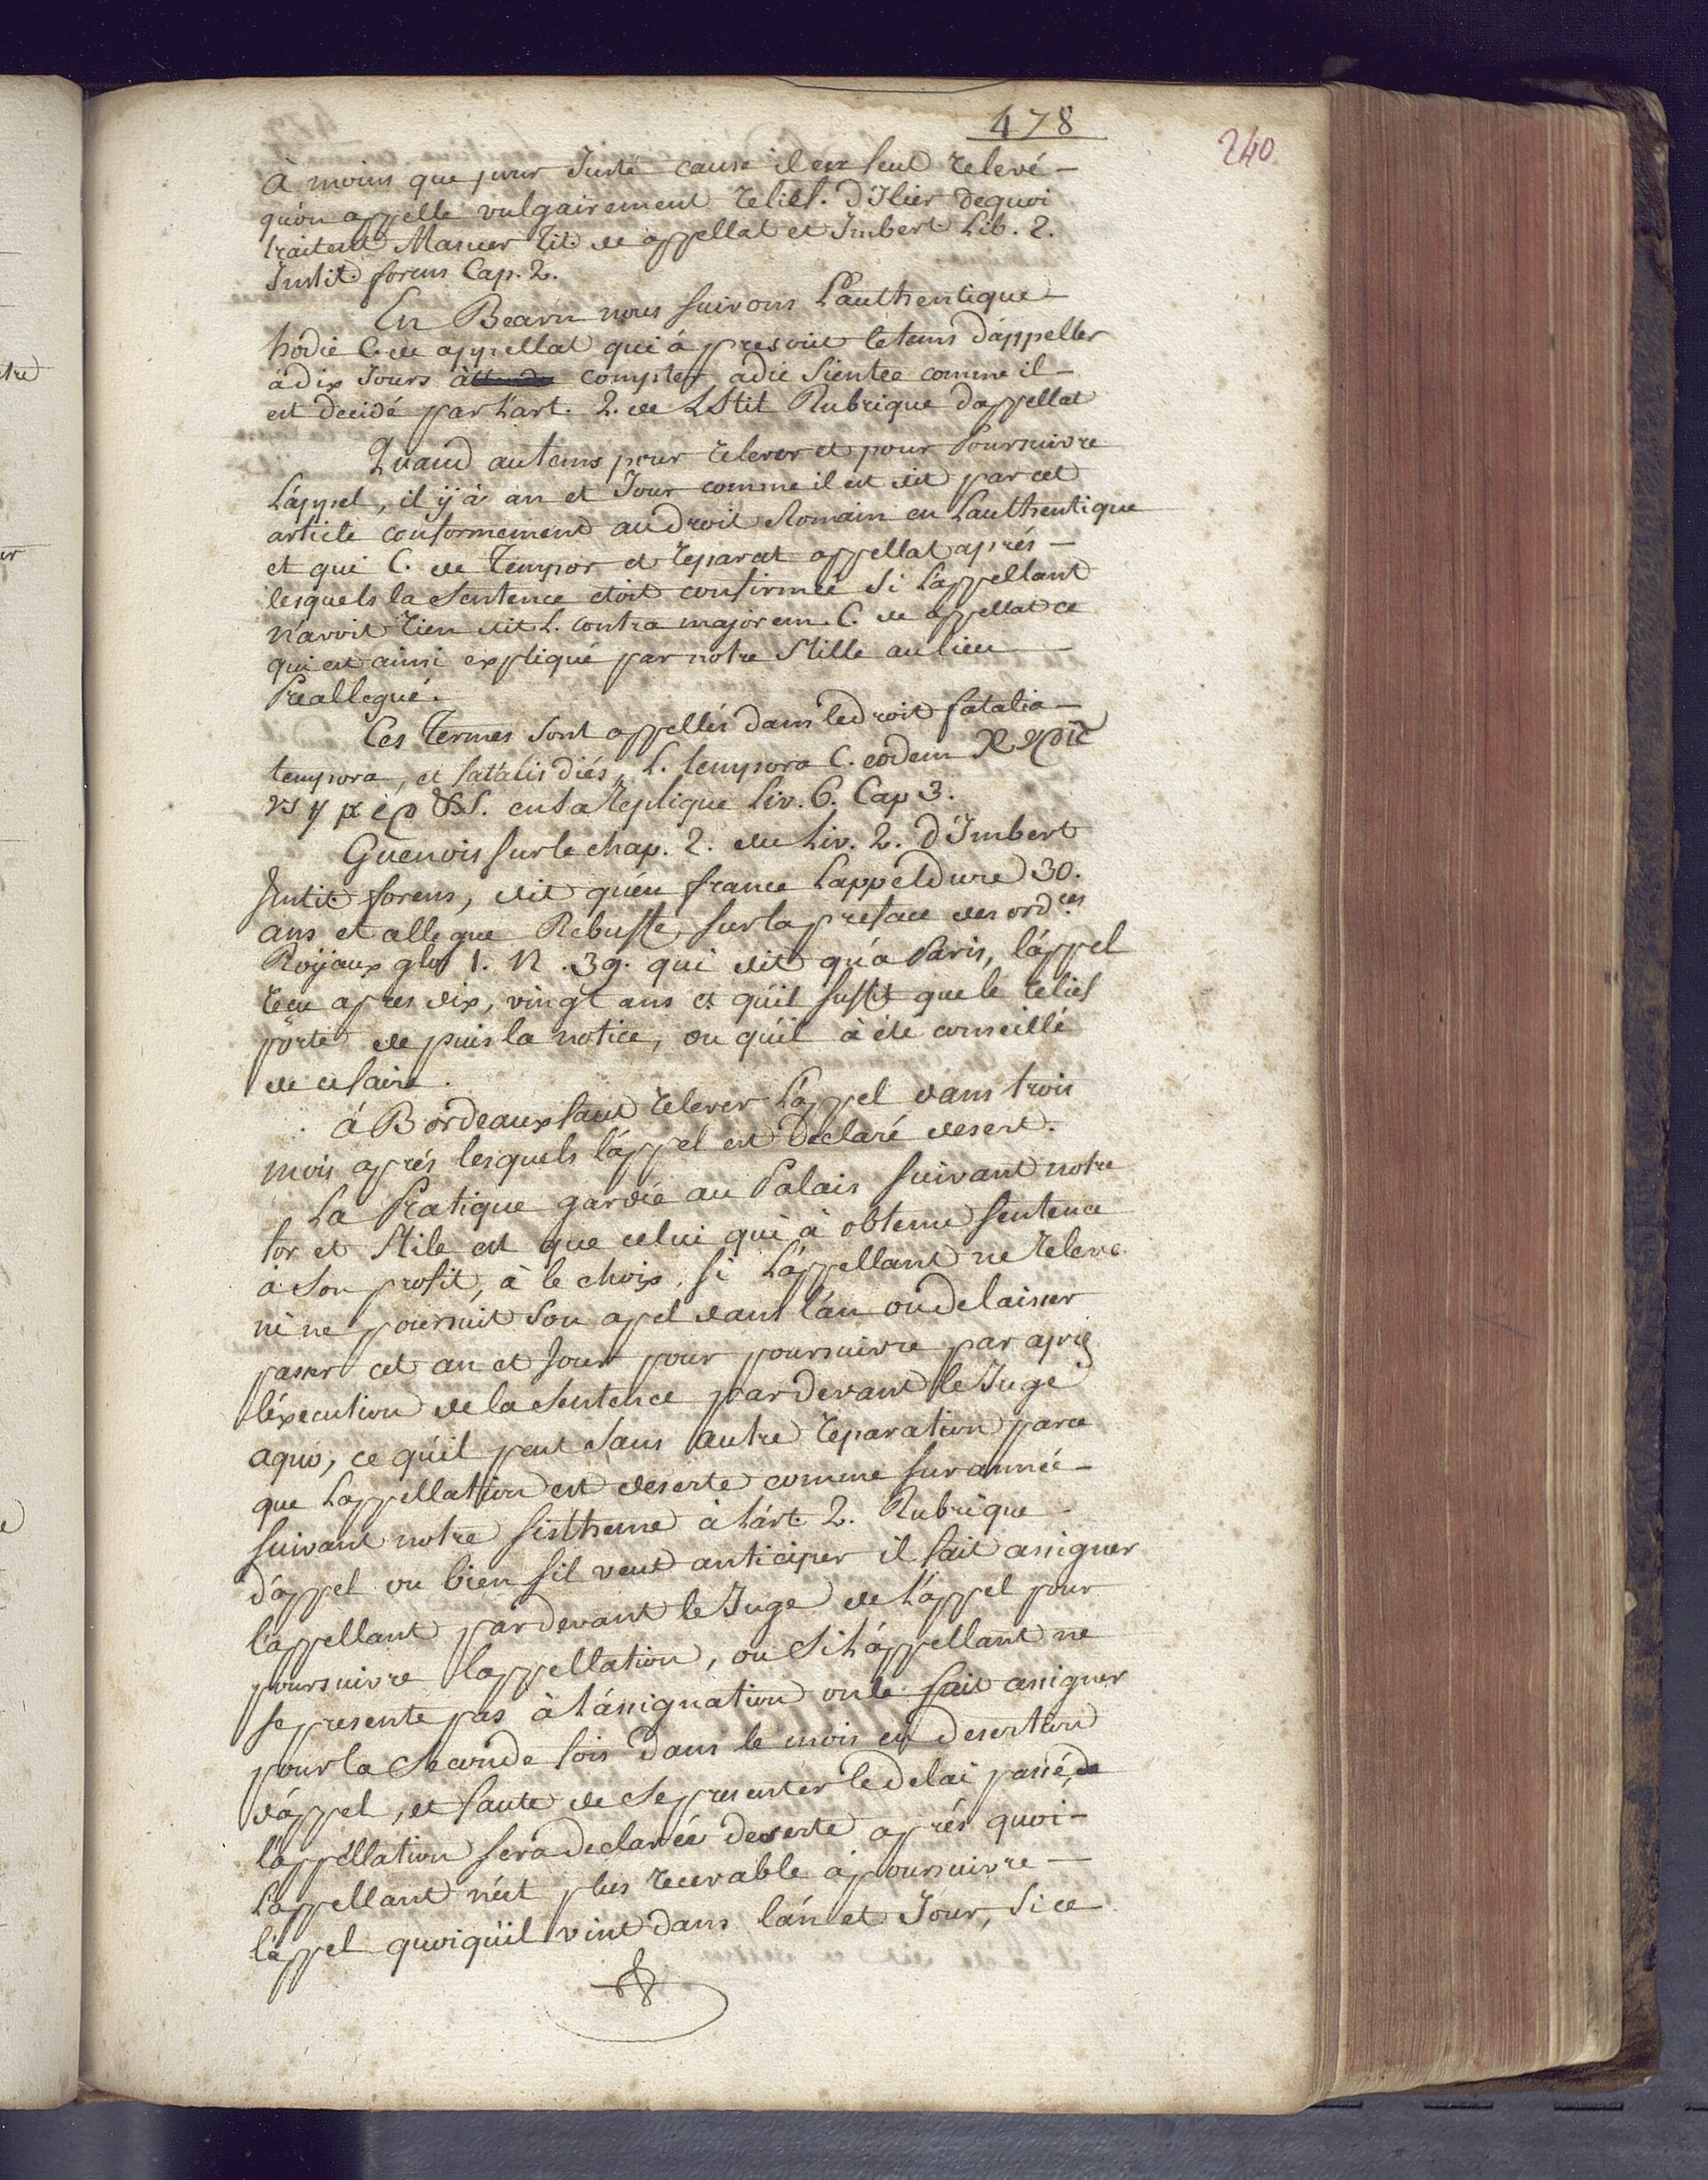 478
240
à moins que pour Juste cause il en seul relevé -
qu'on appelle vulgairement relief. d'Ilier dequoi
traitent Masuer tit. de appellat et Imbert Lib. 2.
Instit. forens Cap. 2.
En Bearn nous suivons l'authentique
hodie C. de appellat qui à prescrit letems d'appeller
à dix Jours à compter adie sientee comme il -
est decidé par l'art. 2. de Stil Rubrique d'appellat
Quand autems pour relever et pour Poursuivre
L'appel, il ÿ à an et Jour comme il est dit par cet
article conformement au droit Romain en Lauthentique
et qui C. de Tempor et reparat appellat aprés -
lesquels la Sentence étoit confirmée Si l'appellant
n'avoit rien dit L. contra majorem. C. de appellat ce
qui est ainsi expliqué par notre Stille au lieu -
Preallegué.
Ces termes sont appellés dans le droit fatalia -
tempora, et fatalis diés, L. tempora C. eodem
en sa replique Liv. 6. Cap 3.
Guenois sur le chap. 2. du Liv. 2. d'Imbert
Instit. forens, dit qu'en france L'appel dure 30.
ans et allegue Rebuffe, sur la preface des ord.ces
Roÿaux glos 1. N. 39. qui dit qu'a Paris, l'appel
reçu apres dix, vingt ans et qu'il suffit que le relief
porte de puis la notice, ou qu'il à été conseillé
de ce faire.
à Bordeaux faut relever L'appel dans trois
mois aprés lesquels l'appel est déclaré desert.
La Pratique gardée au Palais suivant notre
for et Stile est que celui qui à obtenu sentence
à Son profit, à le choix, si L'appellant ne releve
ni ne poursuit Son apel dans l'an ou de laisser
passer cet an et Jour pour poursuivre par aprés
l'éxecution de la Sentence pardevant le Juge
aquo, ce qu'il peut sans autre reparation parce
que L'appellation est deserte comme surannée -
suivant notre sistheme à l'árt. 2. Rubrique -
d'appel ou bien s'il veut anticiper il fait assigner
l'appellant pardevant le Juge de l'appel pour
poursuivre l'appellation, ou Si L'appellant ne
se presente pas à l'assignation on le fait assigner
pour la Seconde fois dans le mois en desertion
d'appel, et faute de Se presenter le delai passé,
l'appellation sera declarée deserte aprés quoi -
L'appellant n'est plus recevable à poursuivre -
l'appel quoiqu'il vint dans l'an et Jour, Si ce